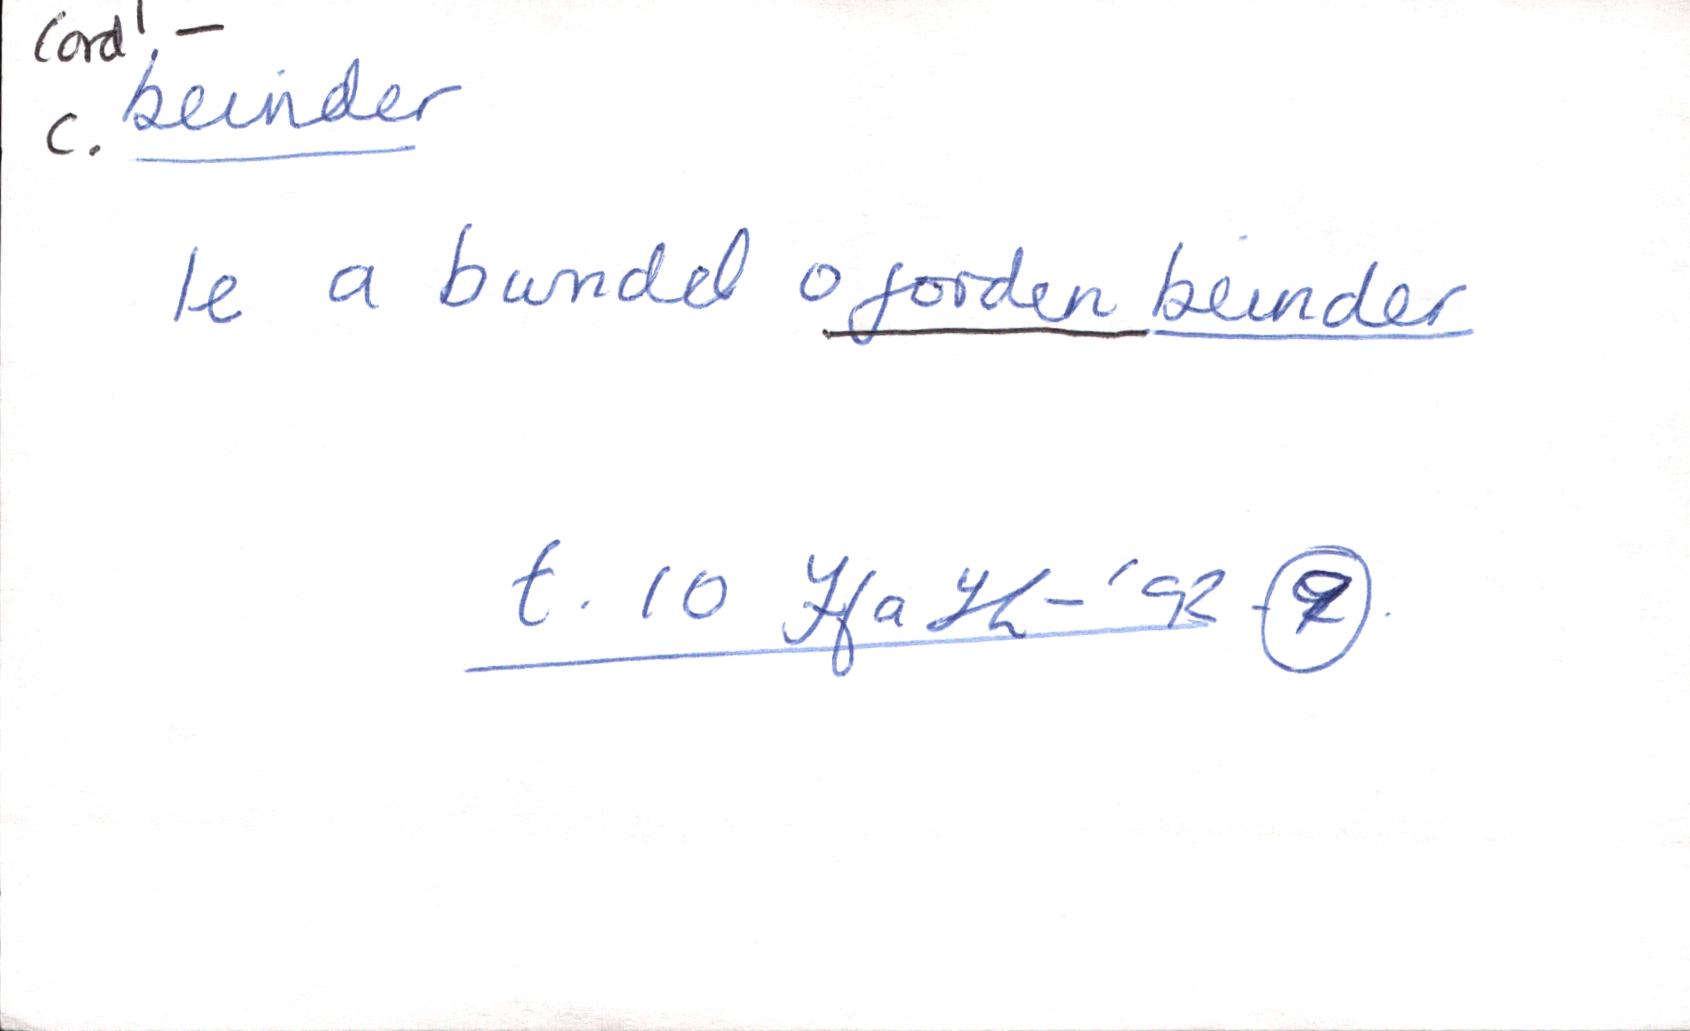 Cord' –
c. beinder
le a bundel o forden beinder
t. 10 '92